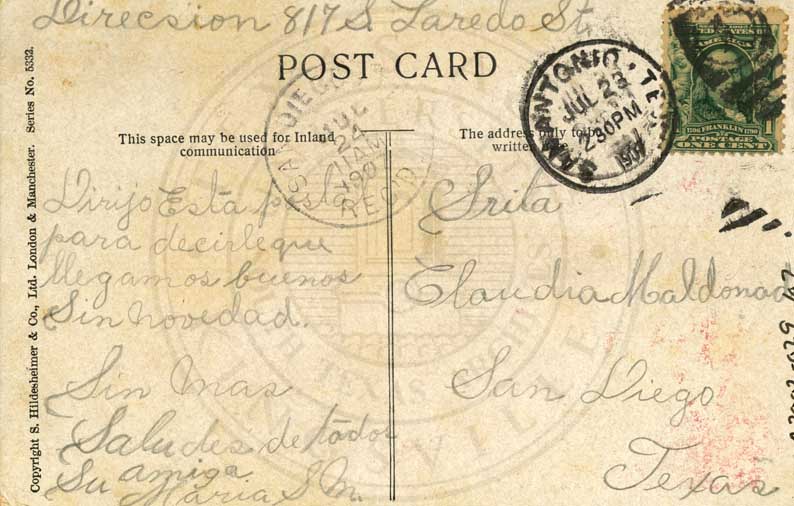 Direcsion 817 S. Laredo St
POST CARD
This space may be used for Inland
communication
The address only to be
written here
SAN ANTONIO, TEX
JUL 23
230PM
SAN DIEGO
JUL
24
11AM
REC'D
UNITED STATES OF
AMERICA
FRANKLIN
POSTAGE
ONE CENT
Dirijo Esta postal
para decirle que
llegamos buenos
Sin novedad.
Sin Mas
Saludes de todos
Su amiga
Maria S M.
Srita
Claudia Maldonad
San Diego
Texas
Copyright S. Hildesheimer & Co., Ltd. London & Manchester. Series No. 5332.
SOUTH TEXAS ARCHIVES
KINGSVILLE